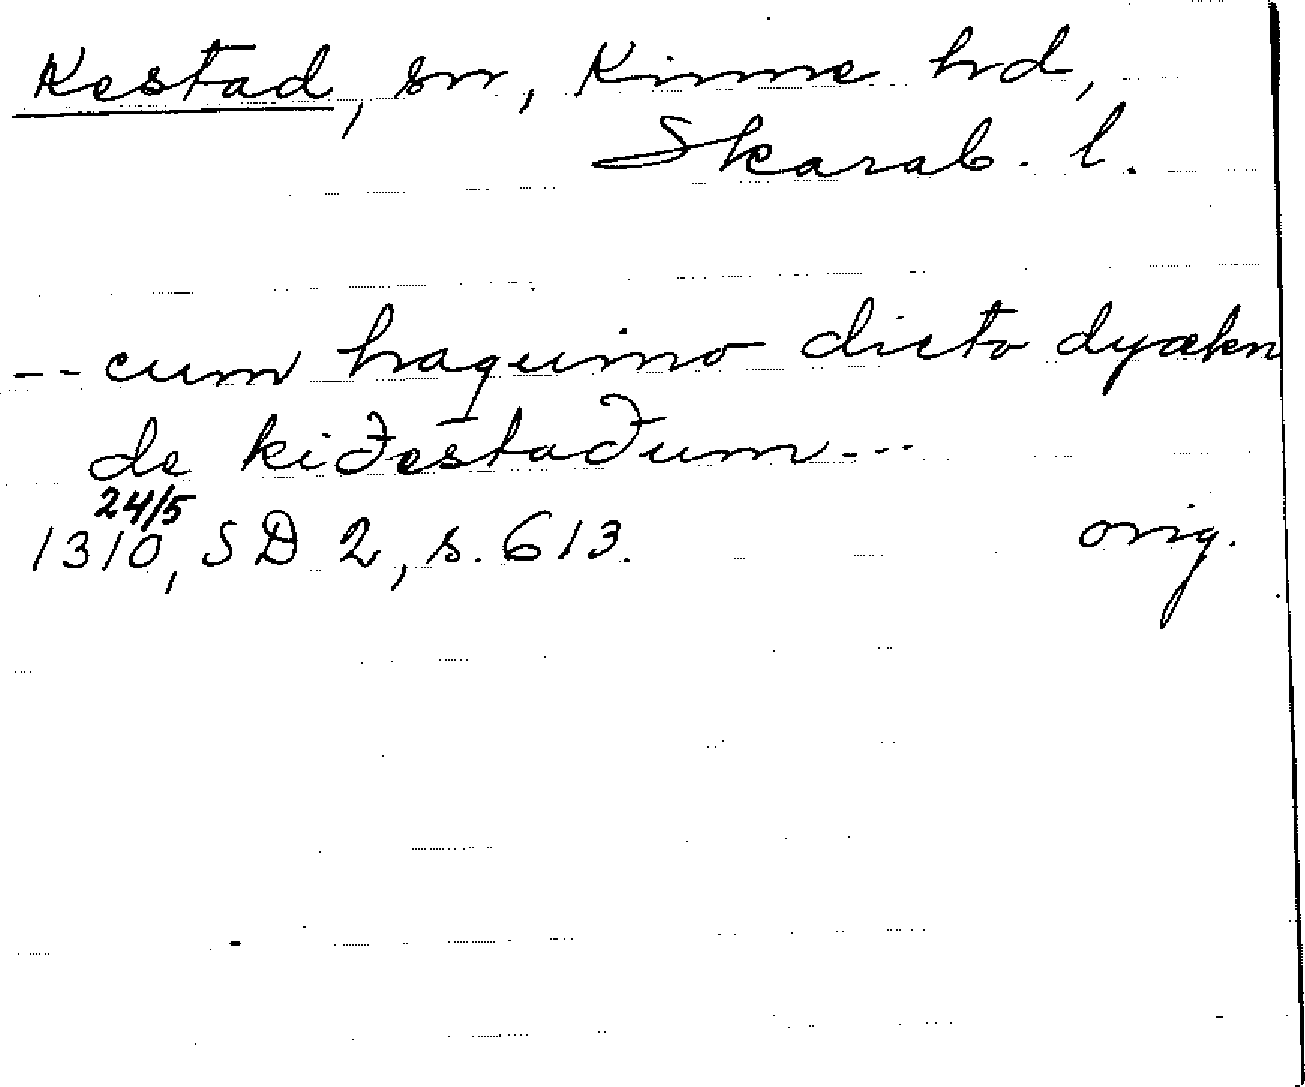 Kestad, sn, Kinne hd,
Skarab. l.
-- cum haquino dicto dyækn
de kiðestaðum ---
24/5
1310, SD 2, s. 613. orig.